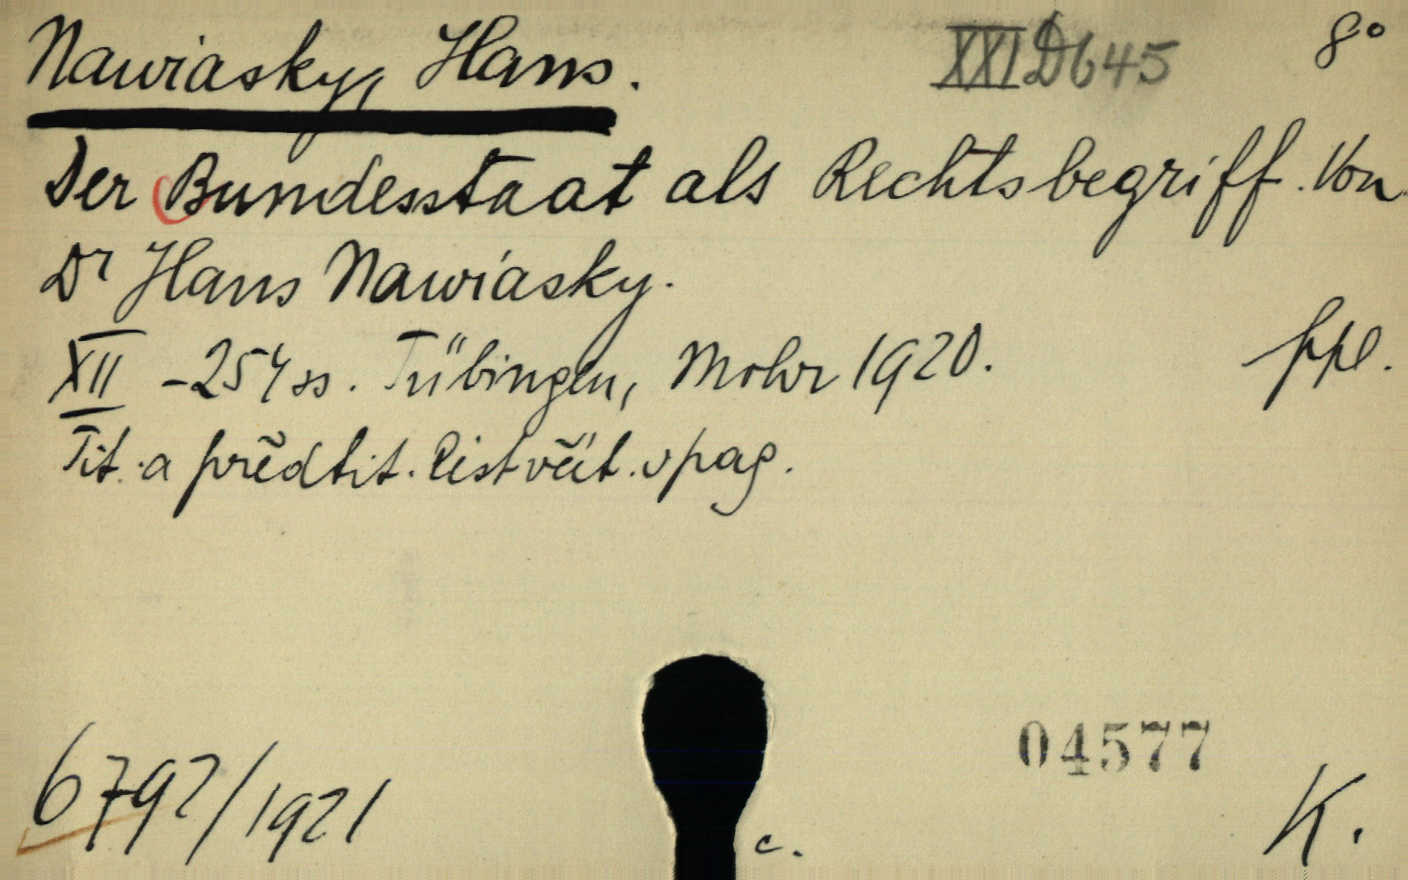 Nawiasky, Hans. XXI D 645 8°
Der Bundesstaat als Rechtsbegriff. Von
Dr Hans Nawiasky.
XII - 254 ss. Tübingen, Mohr 1920. ppl.
Tit. a předtit. list věít. v pag.
04577
6792/1921 c. K.